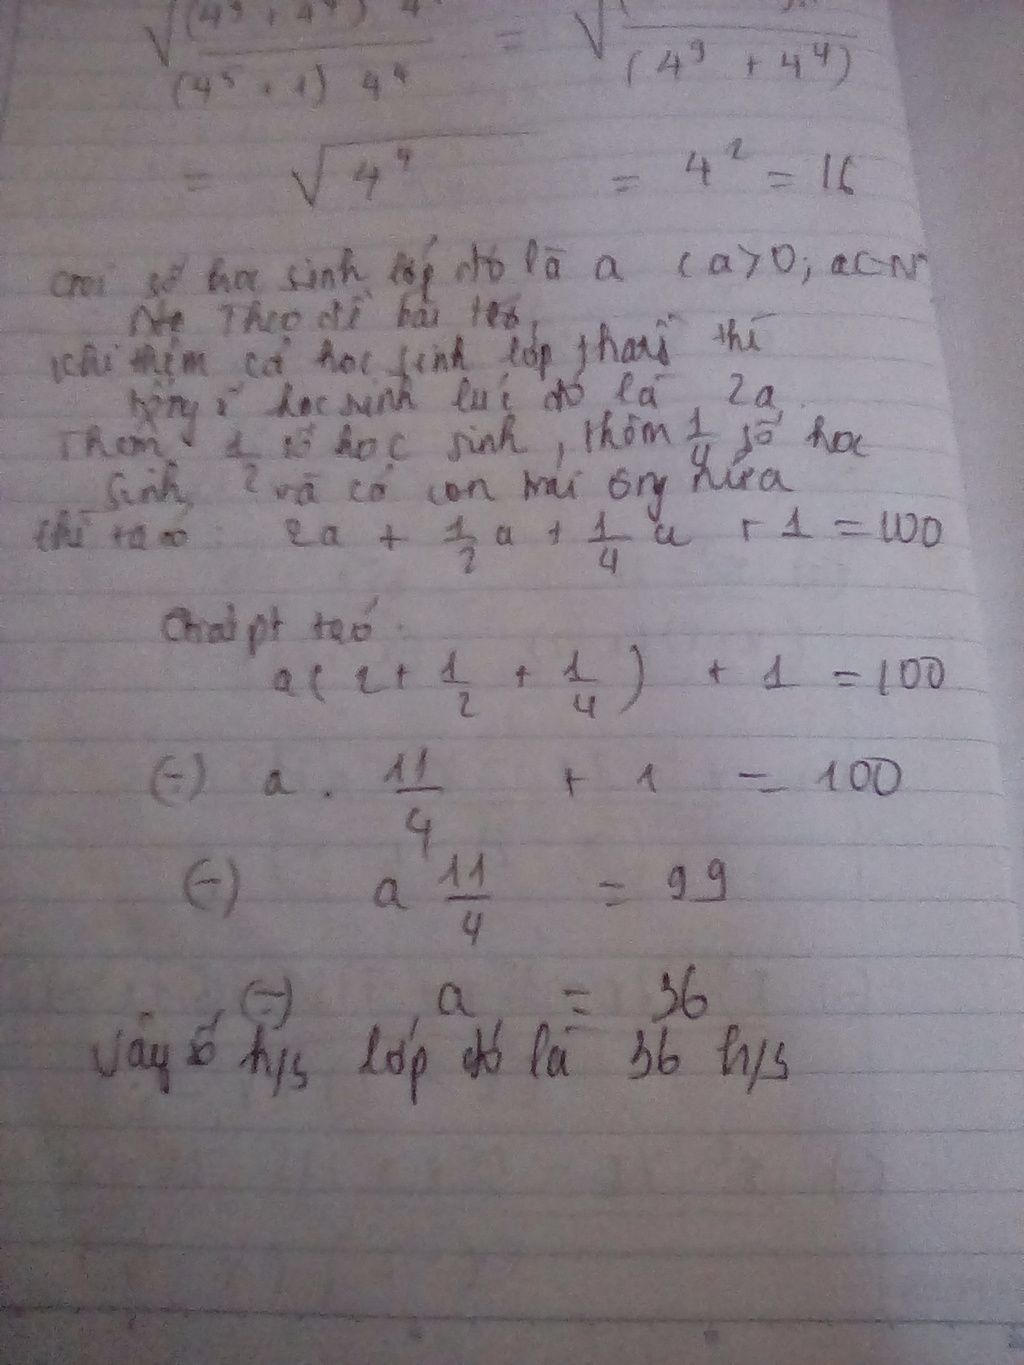 √((4⁹ + 4⁴) 4⁴ / (4⁵ + 1) 4⁴) = √( / (4⁹ + 4⁴))
= √4⁴ = 4² = 16
Gọi số học sinh lớp đó là a (a>0; a∈N*
Theo đề bài ta có
Khi thêm cả học sinh lớp thì
tổng số học sinh lúc đó là 2a
Thêm 1/2 số học sinh, thêm 1/4 số học
sinh, và cả con trai ông nữa
thì ta có: 2a + 1/2 a + 1/4 a + 1 = 100
Giải pt ta có:
a(2 + 1/2 + 1/4) + 1 = 100
(=) a . 11/4 + 1 = 100
(=) a 11/4 = 99
(=) a = 36
Vậy số h/s lớp đó là 36 h/s